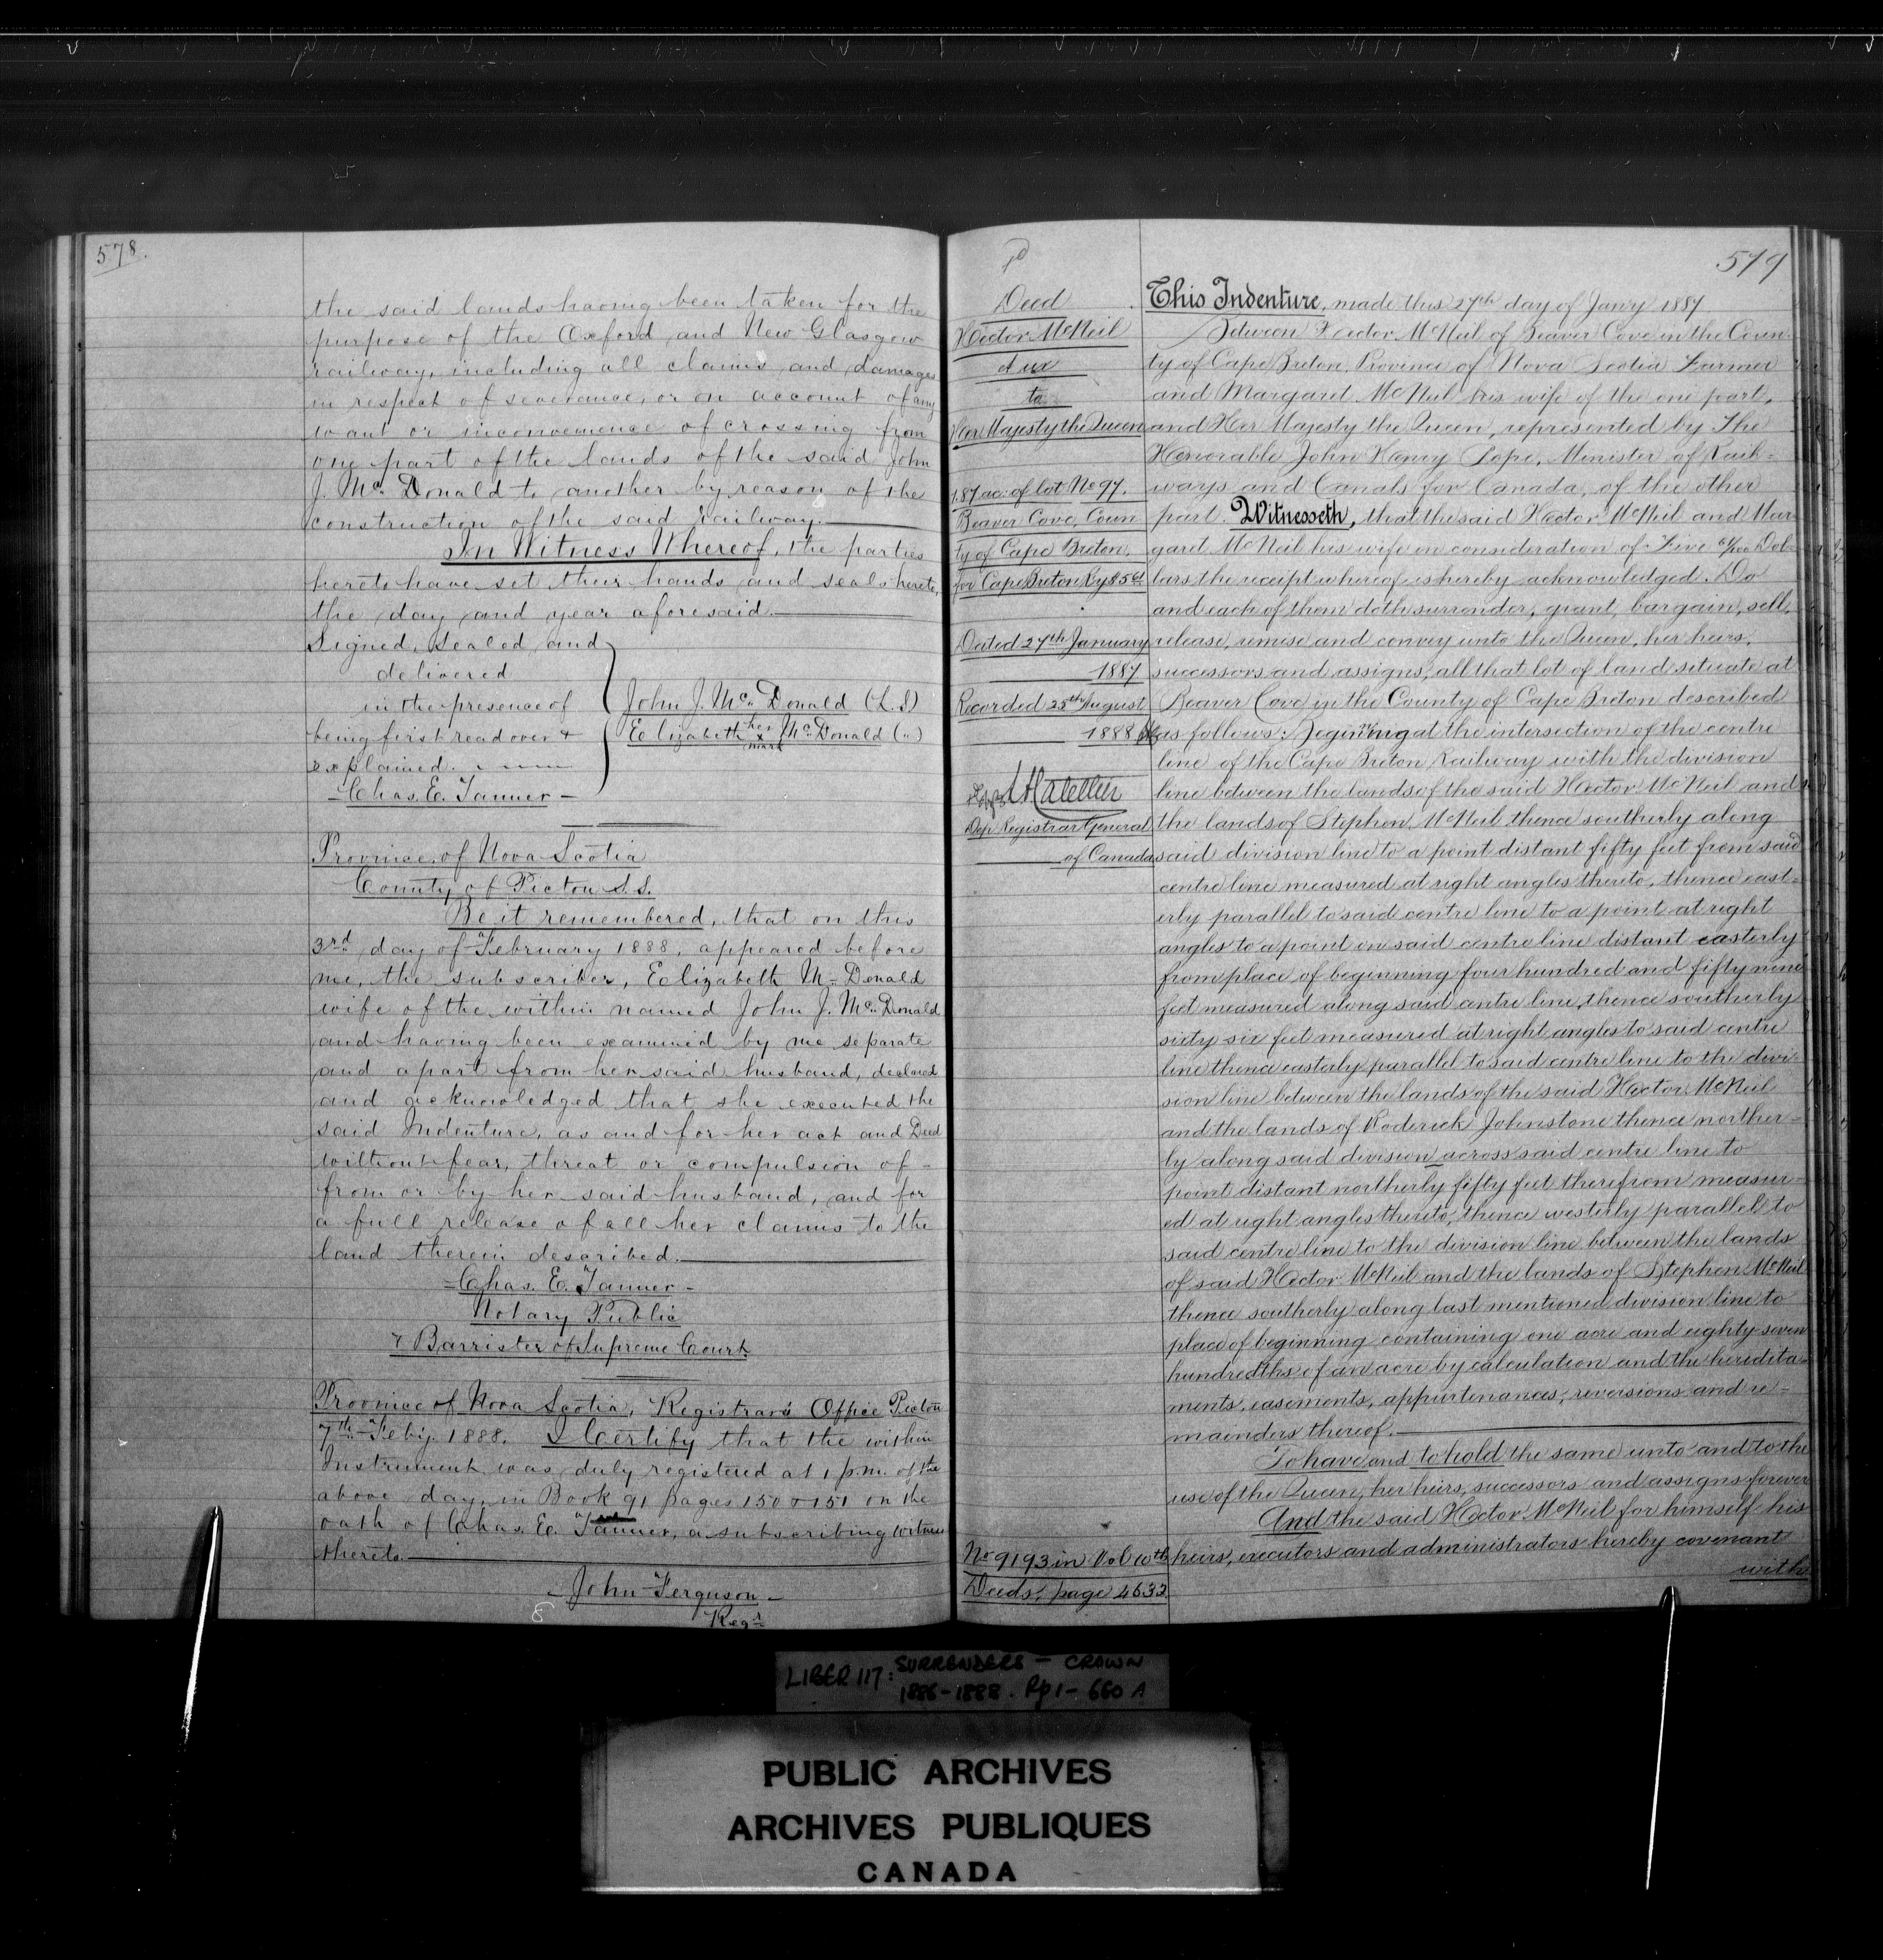 578.
the said lands having been taken for the
purpose of the Oxford and New Glasgow
railway, including all claims and damages
in respect of severance, or on account of any
want or inconvenience of crossing from
one part of the lands of the said John
J. Mc Donald to another by reason of the
construction of the said railway.
In Witness Whereof, the parties
hereto have set their hands and seals hereto,
the day and year aforesaid.
Signed, Sealed, and
delivered
in the presence of
being first read over &
explained.
Chas. E. Tanner
John J. Mc Donald (L.S)
Elizabeth her x mark Mc Donald (")
Province of Nova Scotia
County of Pictou S.S.
Be it remembered, that on this
3rd day of February 1888, appeared before
me, the subscriber, Elizabeth Mc Donald
wife of the within named John J. Mc Donald
and having been examined by me separate
and apart from her said husband, declared
and acknowledged that she executed the
said Indenture, as and for her act and Deed
without fear, threat or compulsion of -
from or by her said husband, and for
a full release of all her claims to the
land therein described.
Chas. E. Tanner
Notary Public
& Barrister of Supreme Court
Province of Nova Scotia, Registrar's Office Pictou
7th Feby. 1888. I Certify that the within
Instrument was duly registered at 1 p.m. of the
above day, in Book 91 pages 150 & 151 on the
oath of Chas. E. Tanner, a subscribing witness
thereto.
John Ferguson
Regr
579
Deed
Hector McNeil
et ux
to
Her Majesty the Queen
1.87 ac: of lot No 97.
Beaver Cove, Coun
ty of Cape Breton,
for Cape Breton Ry $5.61
Dated 27th January
1887
Recorded 25th August
1888
Dep Registrar General
of Canada
No 9193 in Vol 10th
Deeds, page 4632
This Indenture, made this 27th day of Janry 1887
Between Hector McNeil of Beaver Cove in the Coun-
ty of Cape Breton, Province of Nova Scotia Farmer
and Margaret McNeil his wife of the one part,
and Her Majesty the Queen, represented by The
Honorable John Henry Pope, Minister of Rail=
ways and Canals for Canada, of the other
part. Witnesseth, that the said Hector McNeil and Mar-
garet McNeil his wife in consideration of Five 61/100 Dol-
lars the receipt whereof is hereby acknowledged. Do
and each of them doth surrender, grant, bargain, sell,
release, remise and convey unto the Queen, her heirs,
successors and assigns, all that lot of land situate at
Beaver Cove in the County of Cape Breton described
as follows: Beginning at the intersection of the centre
line of the Cape Breton Railway with the division
line between the lands of the said Hector McNeil and
the lands of Stephen McNeil thence southerly along
said division line to a point distant fifty feet from said
centre line measured at right angles thereto, thence east=
erly parallel to said centre line to a point at right
angles to a point in said centre line distant easterly
from place of beginning four hundred and fifty nine
feet measured along said centre line, thence southerly
sixty six feet measured at right angles to said centre
line thence easterly parallel to said centre line to the divi-
sion line between the lands of the said Hector McNeil
and the lands of Roderick Johnstone thence norther=
ly along said division across said centre line to
point distant northerly fifty feet therefrom measur=
ed at right angles thereto, thence westerly parallel to
said centre line to the division line between the lands
of said Hector McNeil and the lands of Stephen McNeil
thence southerly along last mentioned division line to
place of beginning containing one acre and eighty seven
hundredths of an acre by calculation and the heredita-
ments, easements, appurtenances, reversions and re=
mainders thereof.
To have and to hold the same unto and to the
use of the Queen, her heirs, successors and assigns forever
And the said Hector McNeil for himself his
heirs, executors and administrators hereby covenant
with
LIBER 117: SURRENDERS - CROWN
1886-1888. Pp 1- 660 A
PUBLIC ARCHIVES
ARCHIVES PUBLIQUES
CANADA